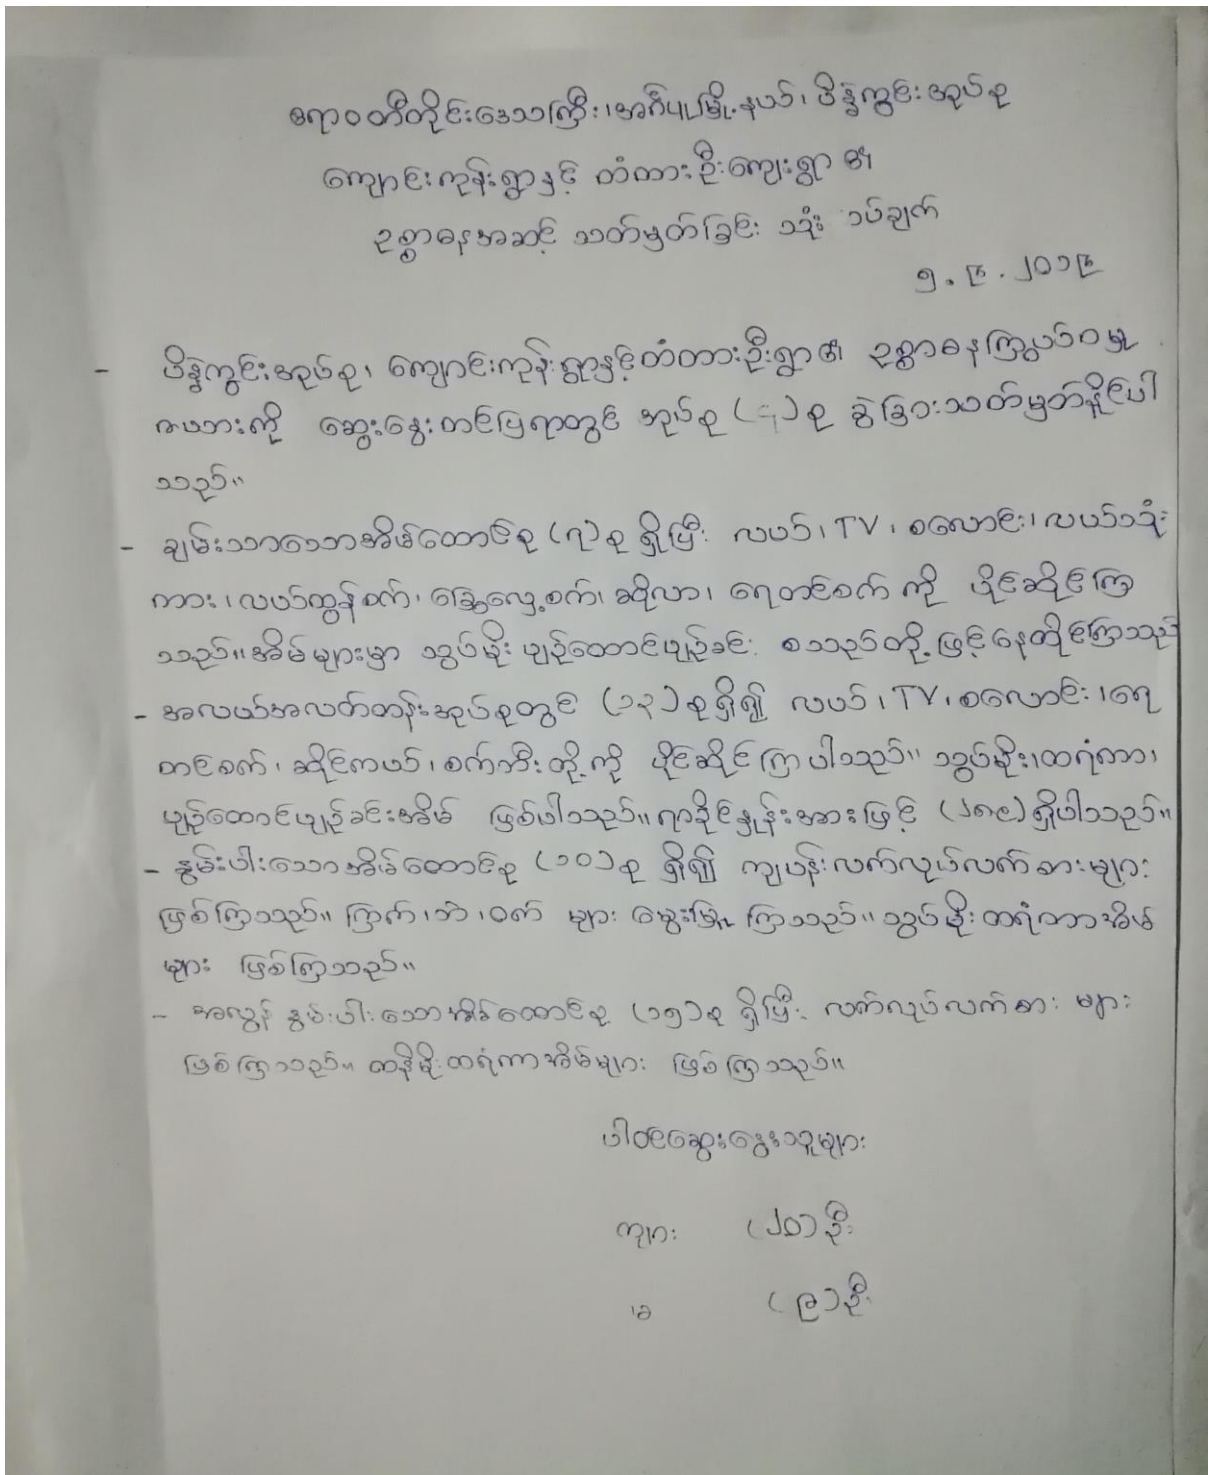 ဧရာဝတီတိုင်းဒေသကြီး၊ အင်္ဂပူမြို့နယ်၊ ဖိန္နဲကွင်းအုပ်စု
ကျောင်းကုန်းရွာနှင့် တံတားဦးကျေးရွာ ၏
ဥစ္စာဓနအဆင့် သတ်မှတ်ခြင်း သုံး သပ်ချက်
၅.၉.၂၀၁၉
- ဖိန္နဲကွင်းအုပ်စု၊ ကျောင်းကုန်းရွာနှင့်တံတားဦးရွာ၏ ဥစ္စာဓနကြွယ်ဝမှု
ဇယားကို ဆွေးနွေးတင်ပြရာတွင် အုပ်စု (၄)စု ခွဲခြားသတ်မှတ်နိုင်ပါ
သည်။
- ချမ်းသာသောအိမ်ထောင်စု (၇)စု ရှိပြီး လယ်၊ TV၊ စလောင်း၊ လယ်သုံး
ကား၊ လယ်ထွန်စက်၊ ခြွေလှေ့စက်၊ ဆိုလာ၊ ရေတင်စက် ကို ပိုင်ဆိုင်ကြ
သည်။ အိမ်များမှာ သွပ်မိုး ပျဉ်ထောင်ပျဉ်ခင်း စသည်တို့ဖြင့်နေထိုင်ကြသည်
- အလယ်အလတ်တန်းအုပ်စုတွင် (၁၃)စုရှိ၍ လယ်၊ TV၊ စလောင်း၊ ရေ
တင်စက်၊ ဆိုင်ကယ်၊ စက်ဘီးတို့ကို ပိုင်ဆိုင်ကြပါသည်။ သွပ်မိုး၊ ထရံကာ၊
ပျဉ်ထောင်ပျဉ်ခင်းအိမ် ဖြစ်ပါသည်။ ရာခိုင်နှုန်းအားဖြင့် ရှိပါသည်။
- နွမ်းပါးသောအိမ်ထောင်စု (၁၀)စု ရှိ၍ ကျပန်းလက်လုပ်လက်စားများ
ဖြစ်ကြသည်။ ကြက်၊ ဘဲ၊ ဝက် များ မွေးမြူ ကြသည်။ သွပ်မိုးထရံကာအိမ်
များ ဖြစ်ကြသည်။
- အလွန် နွမ်းပါးသောအိမ်ထောင်စု (၁၅)စု ရှိပြီး လက်လုပ်လက်စား များ
ဖြစ်ကြသည်။ ဓနိမိုးထရံကာအိမ်များ ဖြစ်ကြသည်။
ပါဝင်ဆွေးနွေးသူများ
ကျား (၂၀)ဦး
မ (၉)ဦး